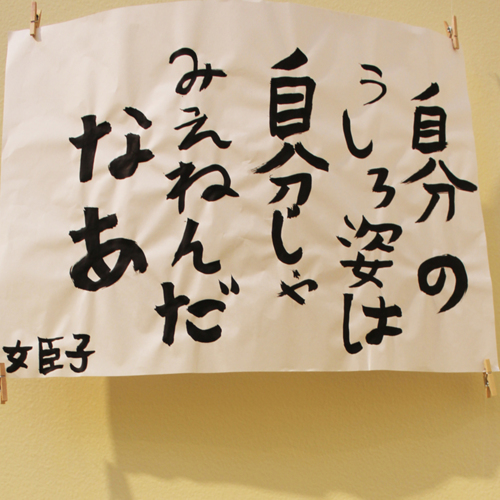 自分の
うしろ姿は
自分じゃ
みえねんだ
なあ
姫子